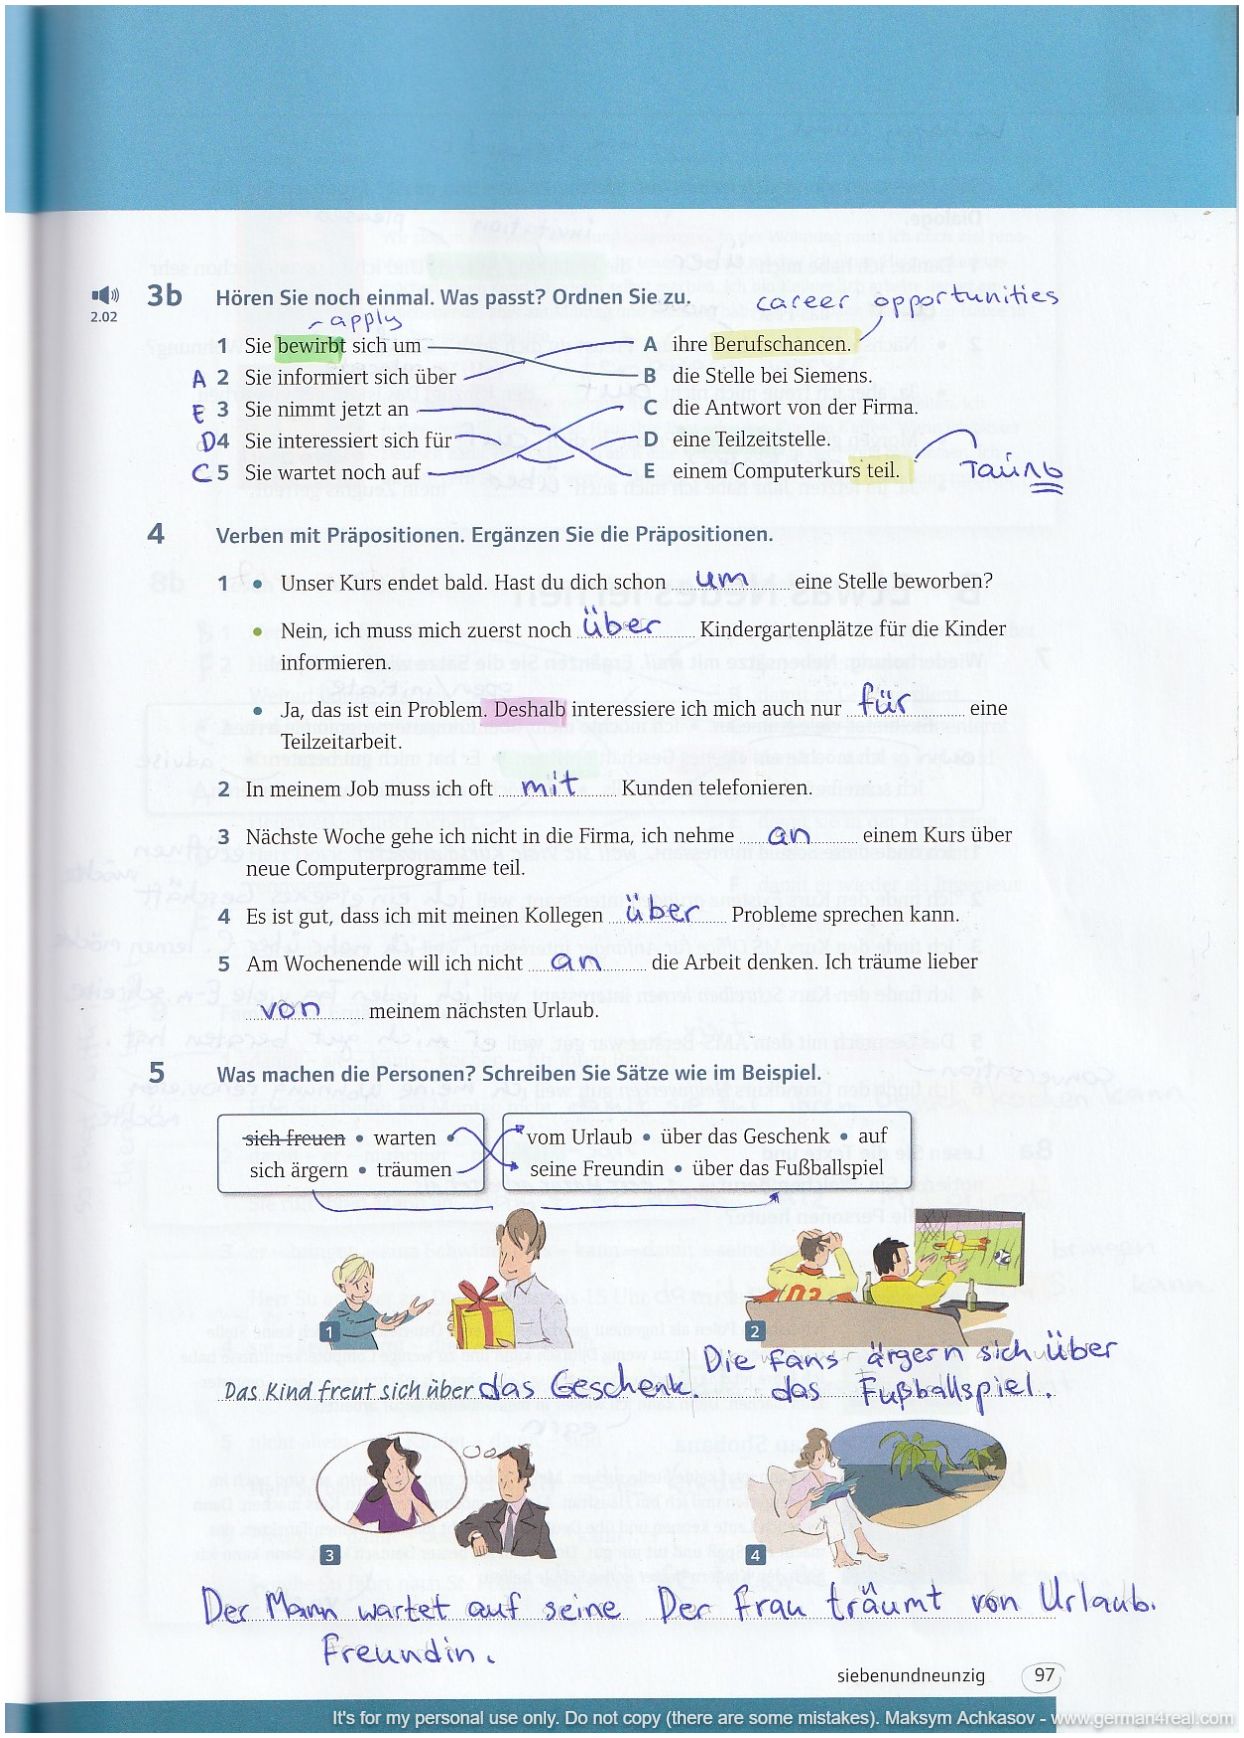 3b Hören Sie noch einmal. Was passt? Ordnen Sie zu.
2.02
career opportunities
apply
1 Sie bewirbt sich um A ihre Berufschancen.
A 2 Sie informiert sich über B die Stelle bei Siemens.
E 3 Sie nimmt jetzt an C die Antwort von der Firma.
D 4 Sie interessiert sich für D eine Teilzeitstelle.
C 5 Sie wartet noch auf E einem Computerkurs teil.
4 Verben mit Präpositionen. Ergänzen Sie die Präpositionen.
1 • Unser Kurs endet bald. Hast du dich schon um eine Stelle beworben?
• Nein, ich muss mich zuerst noch über Kindergartenplätze für die Kinder
informieren.
• Ja, das ist ein Problem. Deshalb interessiere ich mich auch nur für eine
Teilzeitarbeit.
2 In meinem Job muss ich oft mit Kunden telefonieren.
3 Nächste Woche gehe ich nicht in die Firma, ich nehme an einem Kurs über
neue Computerprogramme teil.
4 Es ist gut, dass ich mit meinen Kollegen über Probleme sprechen kann.
5 Am Wochenende will ich nicht an die Arbeit denken. Ich träume lieber
von meinem nächsten Urlaub.
5 Was machen die Personen? Schreiben Sie Sätze wie im Beispiel.
sich freuen • warten • vom Urlaub • über das Geschenk • auf
sich ärgern • träumen seine Freundin • über das Fußballspiel
1
2
Das Kind freut sich über das Geschenk.
Die Fans ärgern sich über
das Fußballspiel.
3
4
Der Mann wartet auf seine
Freundin.
Der Frau träumt von Urlaub.
siebenundneunzig 97
It's for my personal use only. Do not copy (there are some mistakes). Maksym Achkasov - www.german4real.com